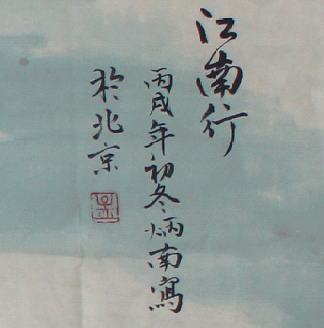 江南行
丙戌年初冬炳南寫
於北京